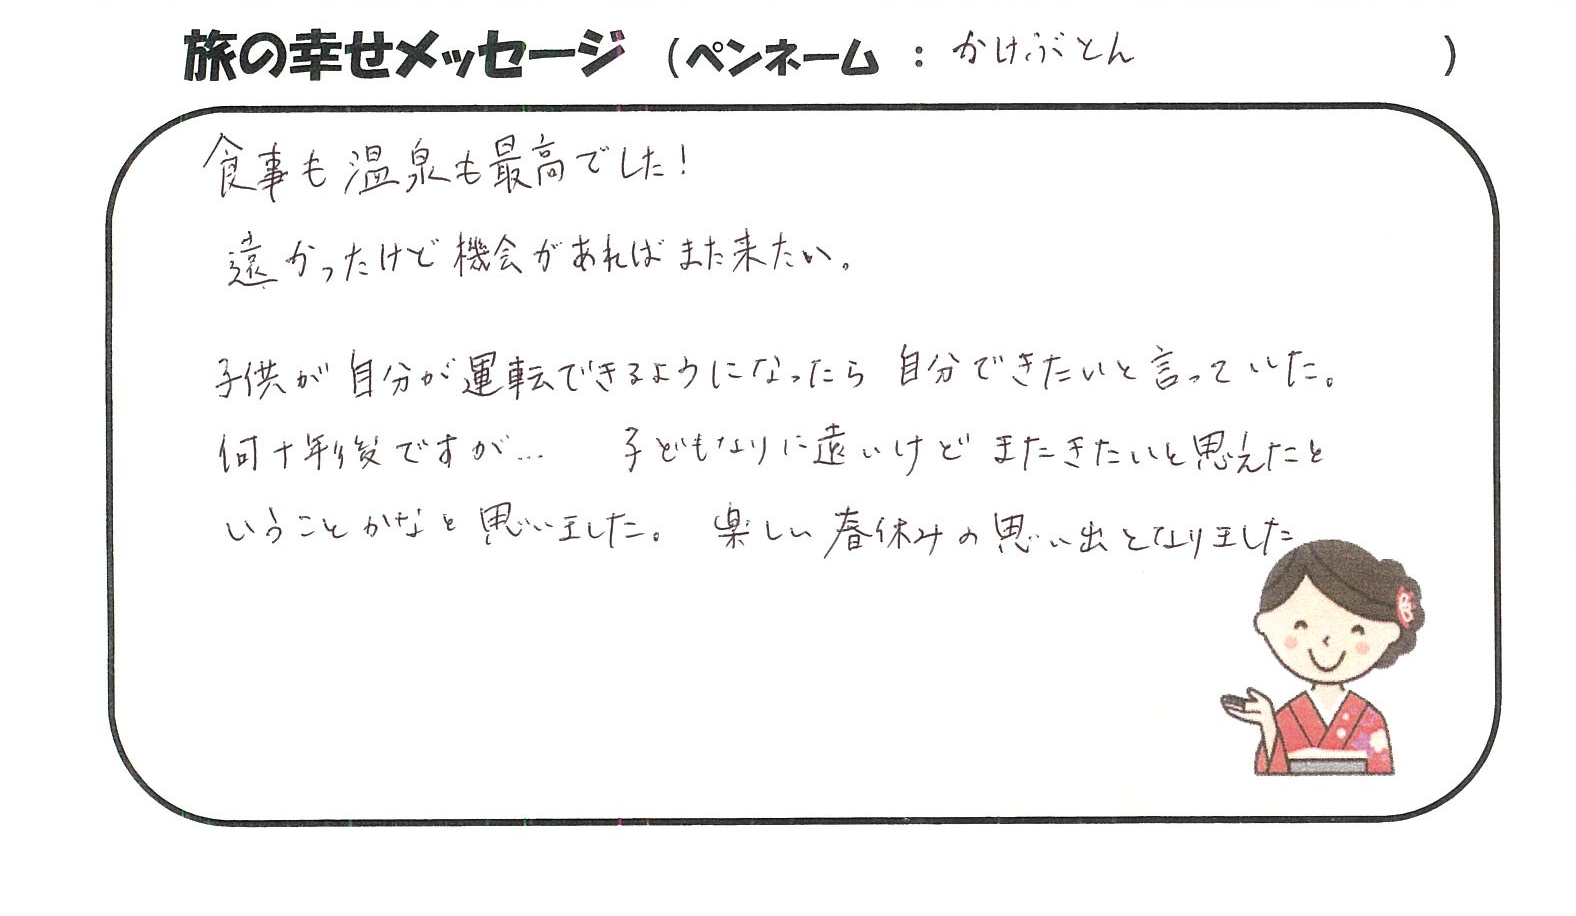 旅の幸せメッセージ (ペンネーム : かけぶとん )
食事も温泉も最高でした!
遠かったけど機会があればまた来たい。
子供が自分が運転できるようになったら 自分できたいと言っていた。
何十年後ですが… 子どもなりに遠いけど またきたいと思えたと
いうことかなと思いました。 楽しい春休みの思い出となりました